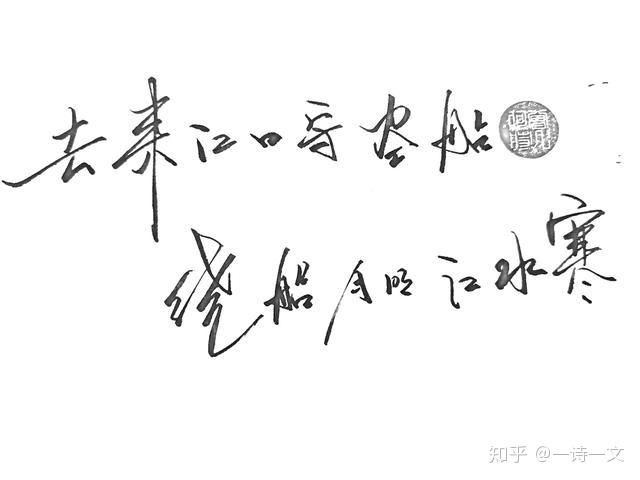 去来江口守空船
绕船月明江水寒
知乎 @一诗一文